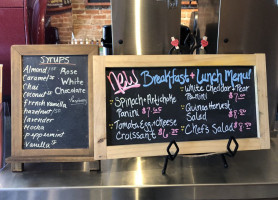 SYRUPS
Almond
Caramel
Chai
Coconut
French Vanilla
hazelnut
lavender
Mocha
peppermint
Vanilla
Rose
White
Chocolate
New Breakfast + Lunch Menu!
Spinach + Artichoke
Panini $7.25
Tomato Egg + Cheese
Croissant $6.25
White Cheddar + Pear
Panini $7
Quinoa Harvest
Salad $8
Chef's Salad $8